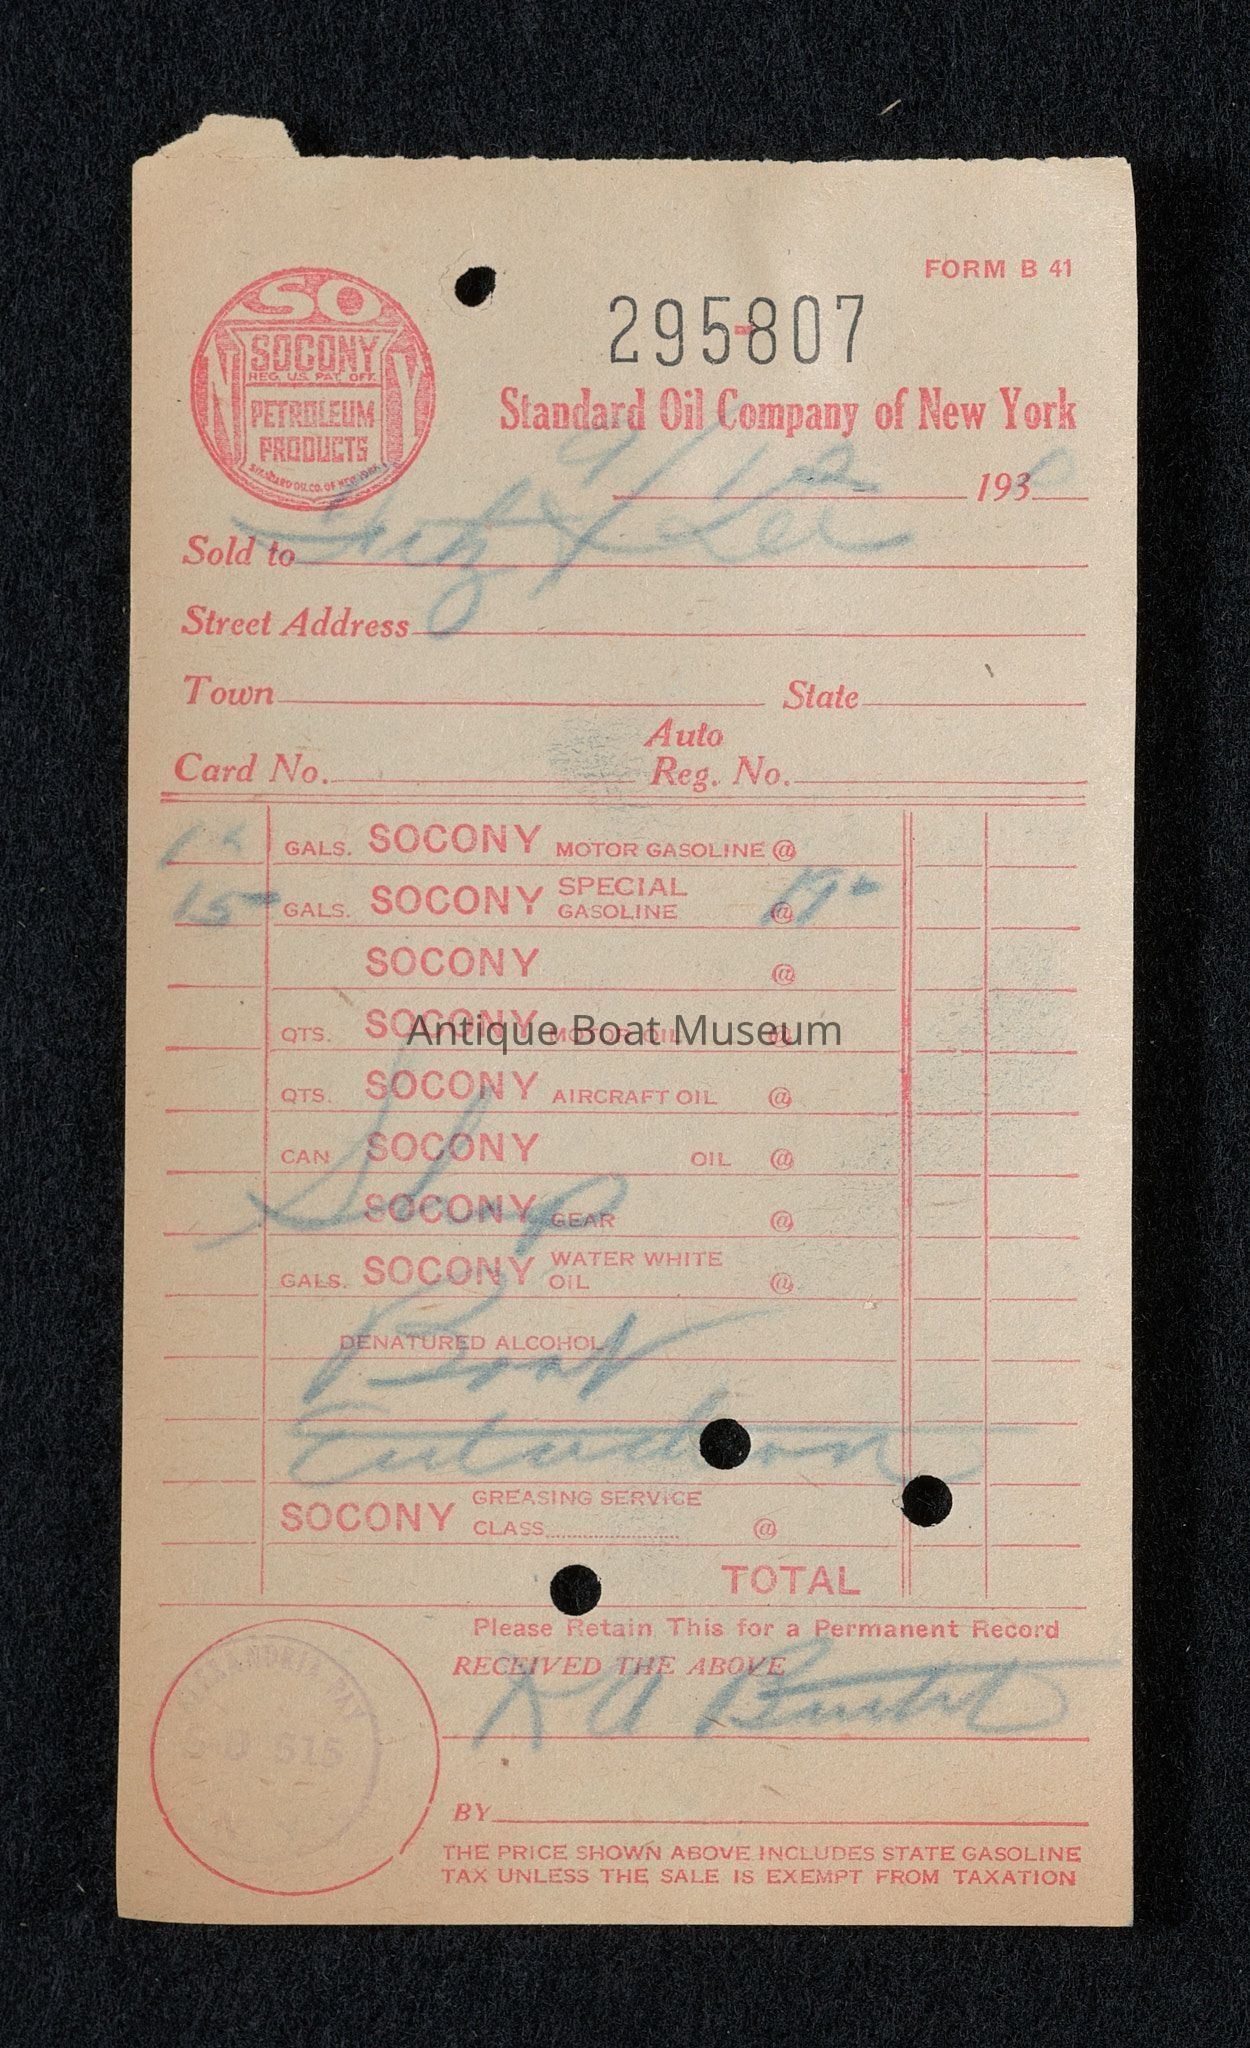 FORM B 41
295807
SO
SOCONY
REG. U.S. PAT. OFF.
PETROLEUM
PRODUCTS
STANDARD OIL CO. OF NEW YORK
NY
Standard Oil Company of New York
9/12 193
Sold to Fitz & Lee
Street Address
Town State
Auto
Card No. Reg. No.
GALS. SOCONY MOTOR GASOLINE @
15 GALS. SOCONY SPECIAL GASOLINE @ 19
SOCONY @
QTS. SOCONY MOTOR OIL @
Antique Boat Museum
QTS. SOCONY AIRCRAFT OIL @
CAN SOCONY OIL @
SOCONY GEAR @
GALS. SOCONY WATER WHITE OIL @
DENATURED ALCOHOL
Boat
SOCONY GREASING SERVICE
CLASS @
TOTAL
Please Retain This for a Permanent Record
RECEIVED THE ABOVE
ALEXANDRIA BAY
BY
THE PRICE SHOWN ABOVE INCLUDES STATE GASOLINE
TAX UNLESS THE SALE IS EXEMPT FROM TAXATION